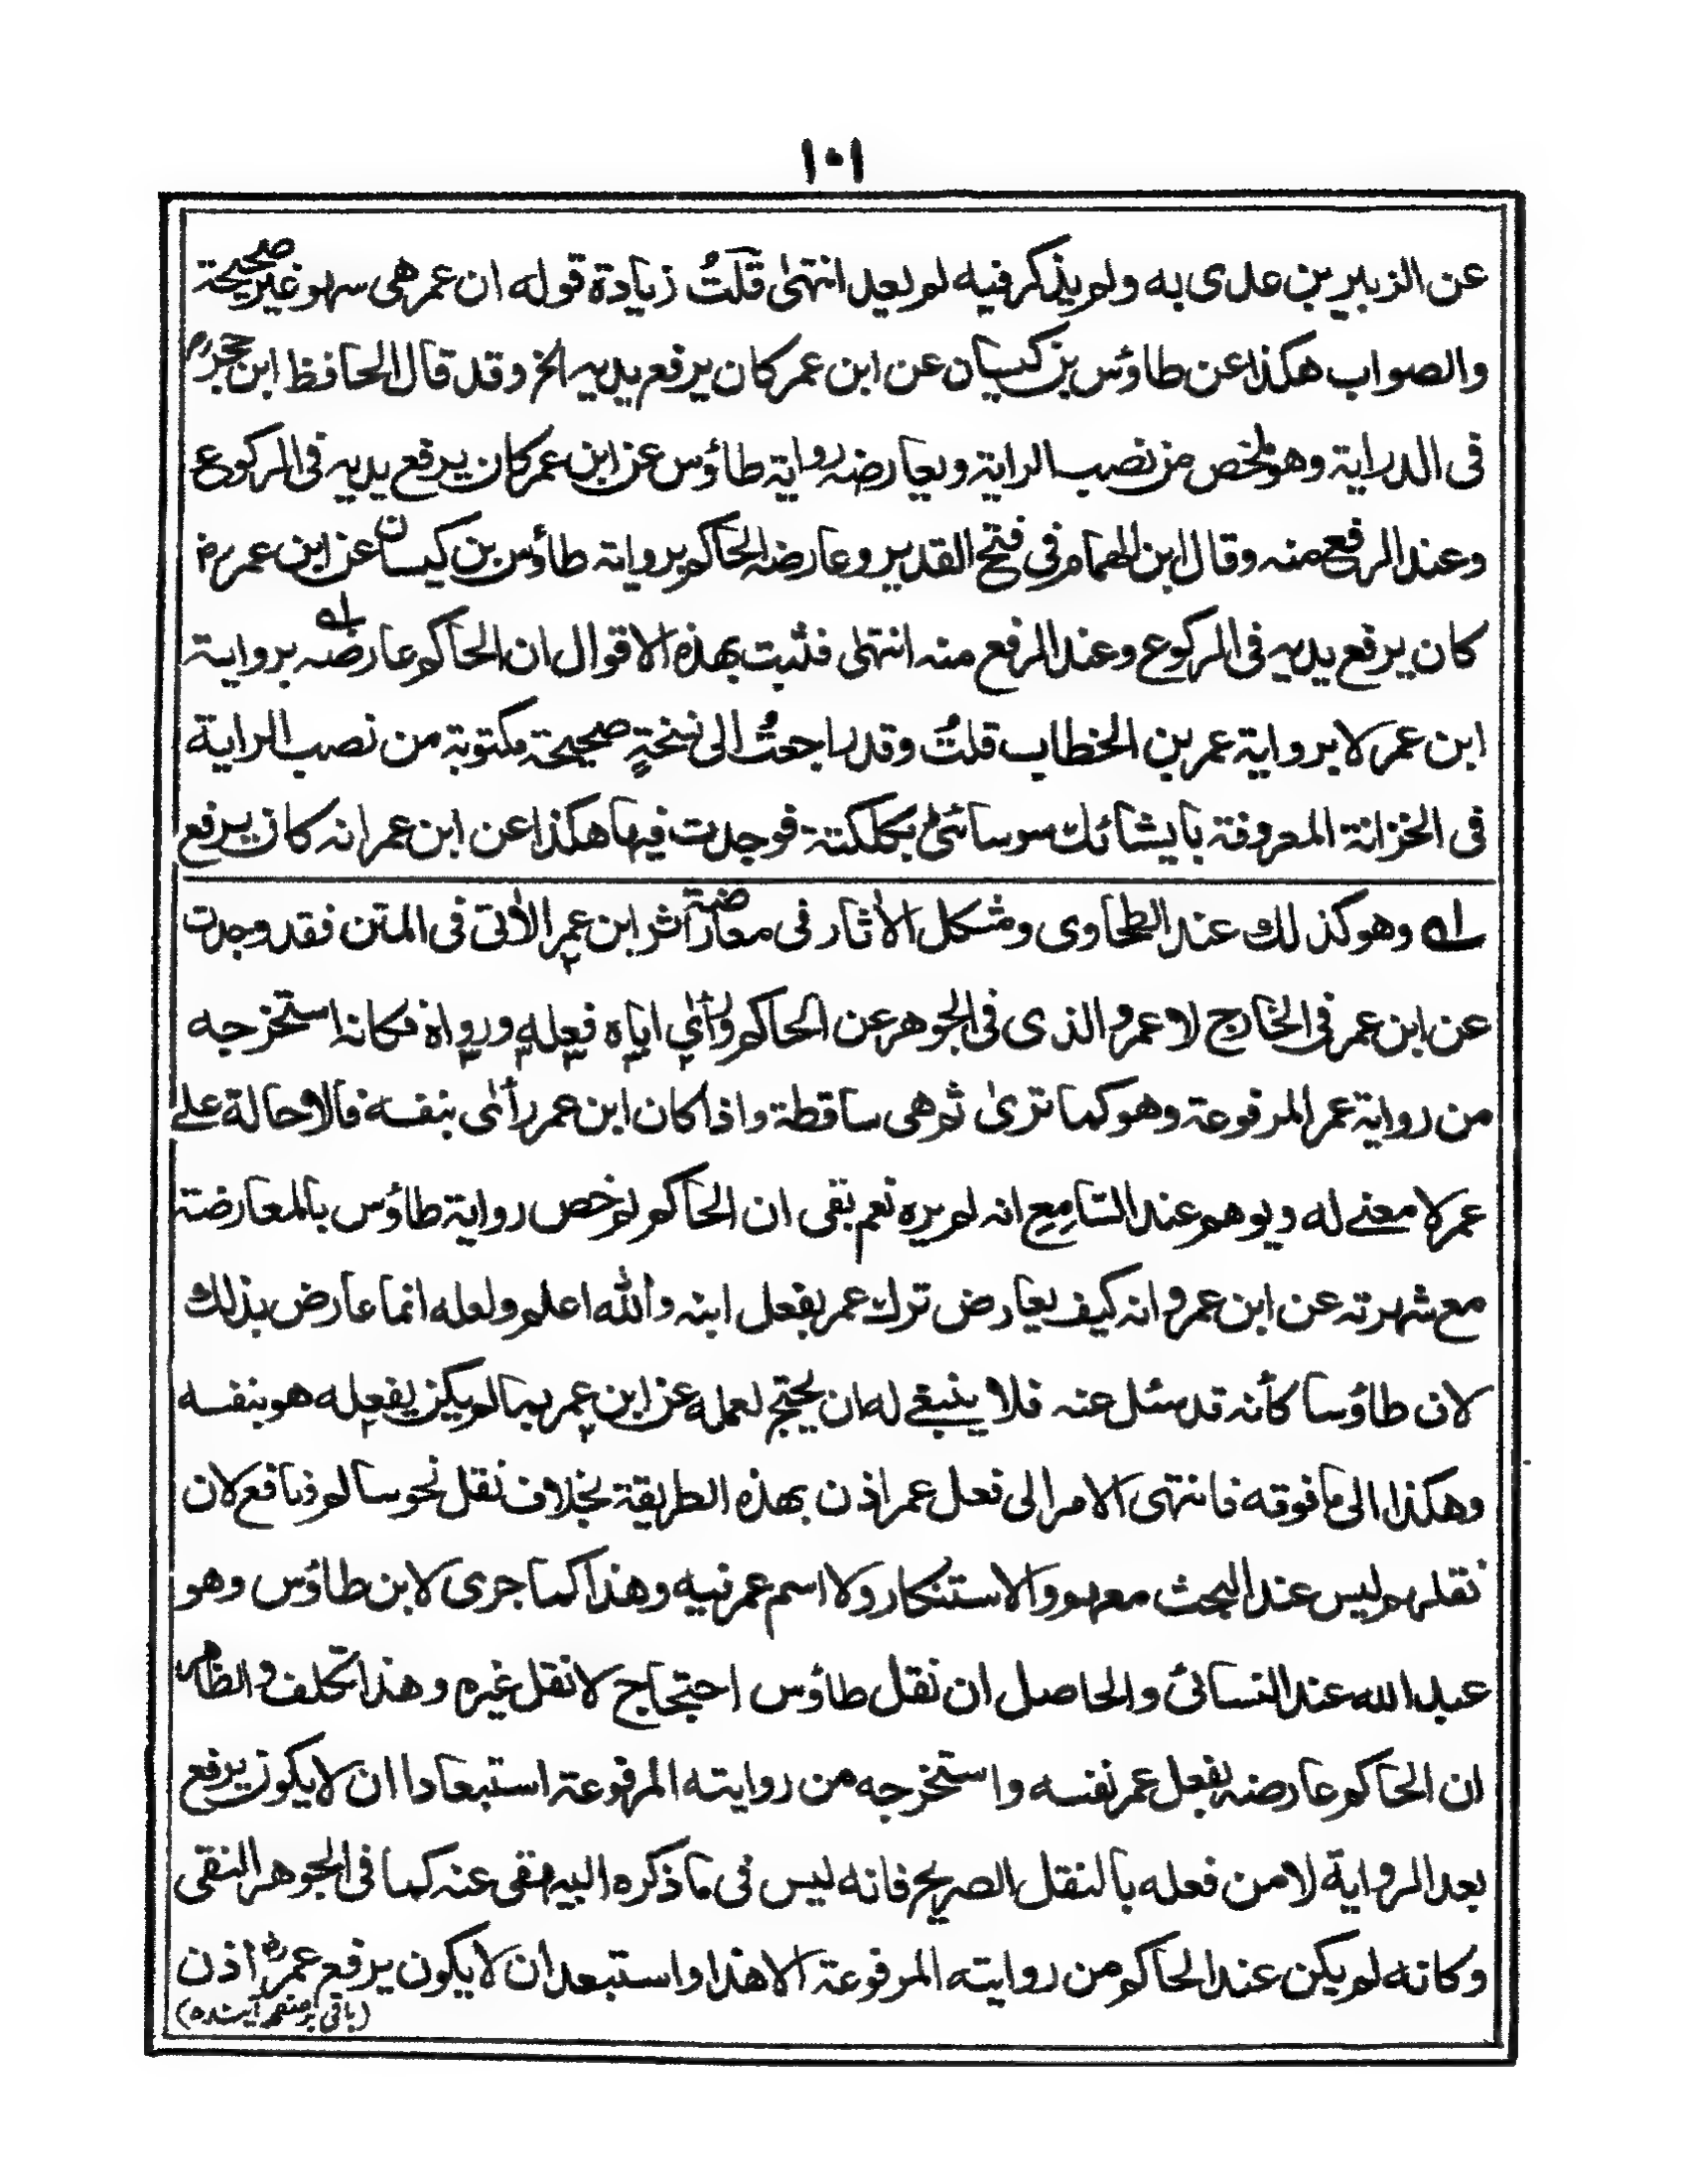 ١٠١
عن الزبير بن عدى به ولم يذكر فيه لم يعد انتهىٰ قلتُ زيادة قوله ان عمر هى سهو غير صحيحة
والصواب هكذا عن طاؤس بن كيسان عن ابن عمر كان يرفع يديه الخ وقد قال الحافظ ابن حجرؒ
فى الدراية وهو ملخص من نصب الراية ويعارضه رواية طاؤس عن ابن عمر كان يرفع يديه فى الركوع
وعند الرفع منه وقال ابن الهمام فى فتح القدير وعارضه الحاكم برواية طاؤس بن كيسان عن ابن عمر رضـ
كان يرفع يديه فى الركوع وعند الرفع منه انتهٰى فثبت بهذه الاقوال ان الحاكم عارضه ؎۱ برواية
ابن عمر لا برواية عمر بن الخطاب قلتُ وقد راجعتُ الى نسخةٍ صحيحة مكتوبة من نصب الراية
فى الخزانة المعروفة بايشائك سوسائٹى بكلكتة فوجدت فيها هكذا عن ابن عمر انه كان يرفع
؎۱ وهو كذلك عند الطحاوى ومشكل الاٰثار فى معارضة اثر ابن عمر الاٰتى فى المتن فقد وجدت
عن ابن عمر فى الخارج لا عمر والذى فى الجوهر عن الحاكم ورأى اباه فعله ورواه فكانه استخرجه
من رواية عمر المرفوعة وهو كما ترىٰ ثم هى ساقطة واذا كان ابن عمر رأىٰ بنفسه فالاحالة علے
عمر لا معنے له ويوهم عند السّامِع انه لم يره نعم بقى ان الحاكم لم خص رواية طاؤس بالمعارضة
مع شهرته عن ابن عمر وانه كيف يعارض ترك عمر بفعل ابنه والله اعلم ولعله انما عارض بذلك
لان طاؤسا كأنه قد سئل عنه فلا ينبغے له ان يحتج لعمله عن ابن عمر بما لم يكن يفعله هو بنفسه
وهكذا الى ما فوقه فانتهى الامر الى فعل عمر اذن بهذه الطريقة بخلاف نقل نحو سالم ونافع لان
نقلهم ليس عند البحث معهم والاستنكار ولا اسم عمر فيه وهذا كما جرى لابن طاؤس وهو
عبد الله عند النسائى والحاصل ان نقل طاؤس احتجاج لا نقل غيره وهذا تكلف والظاهر
ان الحاكم عارضه بفعل عمر نفسه واستخرجه من روايته المرفوعة استبعادا ان لا يكون يرفع
بعد الرواية لا من فعله بالنقل الصريح فانه ليس فى ما ذكره البيهقى عنه كما فى الجوهر النقى
وكانه لم يكن عند الحاكم من روايته المرفوعة الا هذا واستبعد ان لا يكون يرفع عمرؓ اذن
(باقى بر صفحہ آيندہ)